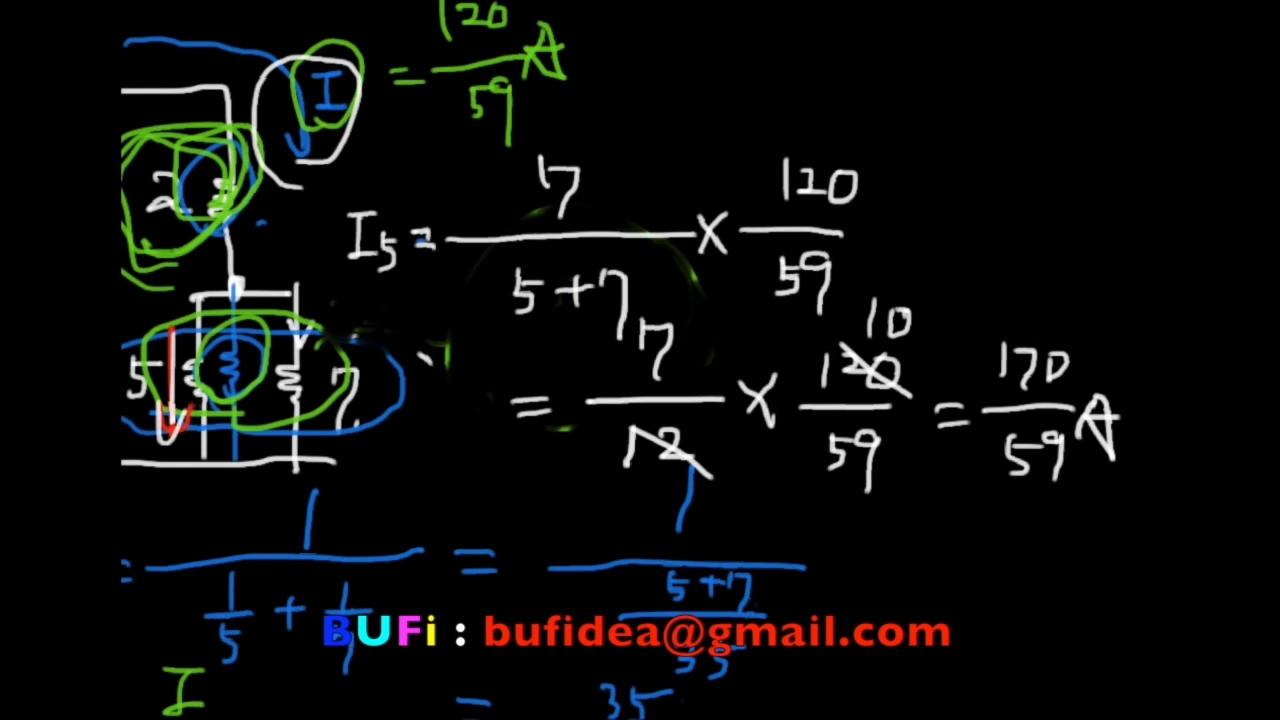 I = 120/59 A
2
I5 = 7/(5+7) × 120/59
5 7
= 7/12 × 120/59 = 170/59 A
10
1/(1/5 + 1/7) = 1/((5+7)/35)
BUFi : bufidea@gmail.com
I = 35